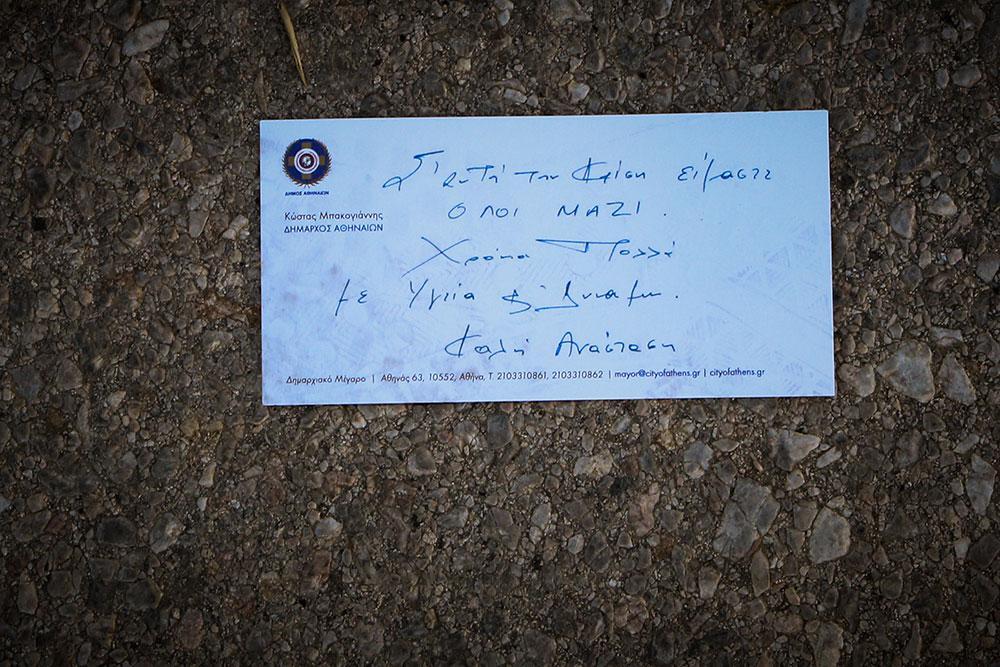 ΔΗΜΟΣ ΑΘΗΝΑΙΩΝ
Κώστας Μπακογιάννης
ΔΗΜΑΡΧΟΣ ΑΘΗΝΑΙΩΝ
Σ' αυτή την κρίση είμαστε
ΟΛΟΙ ΜΑΖΙ.
Χρόνια Πολλά
με Υγεία & Δύναμη.
Καλή Ανάσταση
Δημαρχιακό Μέγαρο | Αθηνάς 63, 10552, Αθήνα, Τ. 2103310861, 2103310862 | mayor@cityofathens.gr | cityofathens.gr